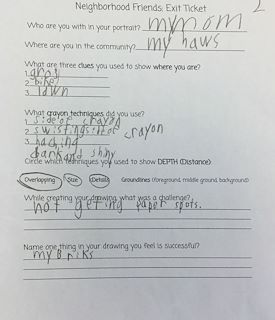 Neighborhood Friends: Exit Ticket
Who are you with in your portrait? my mom
Where are you in the community? my haws
What are three clues you used to show where you are?
1.
2. bike
3. lawn
What crayon techniques did you use?
1 side of crayon
2 swisting side of crayon
3. haching
dark and shiny
Circle which techniques you used to show DEPTH (Distance)
Overlapping Size Details Groundlines (foreground, middle ground, background)
While creating your drawing what was a challenge?
not geting paper spots.
Name one thing in your drawing you feel is successful?
my Briks